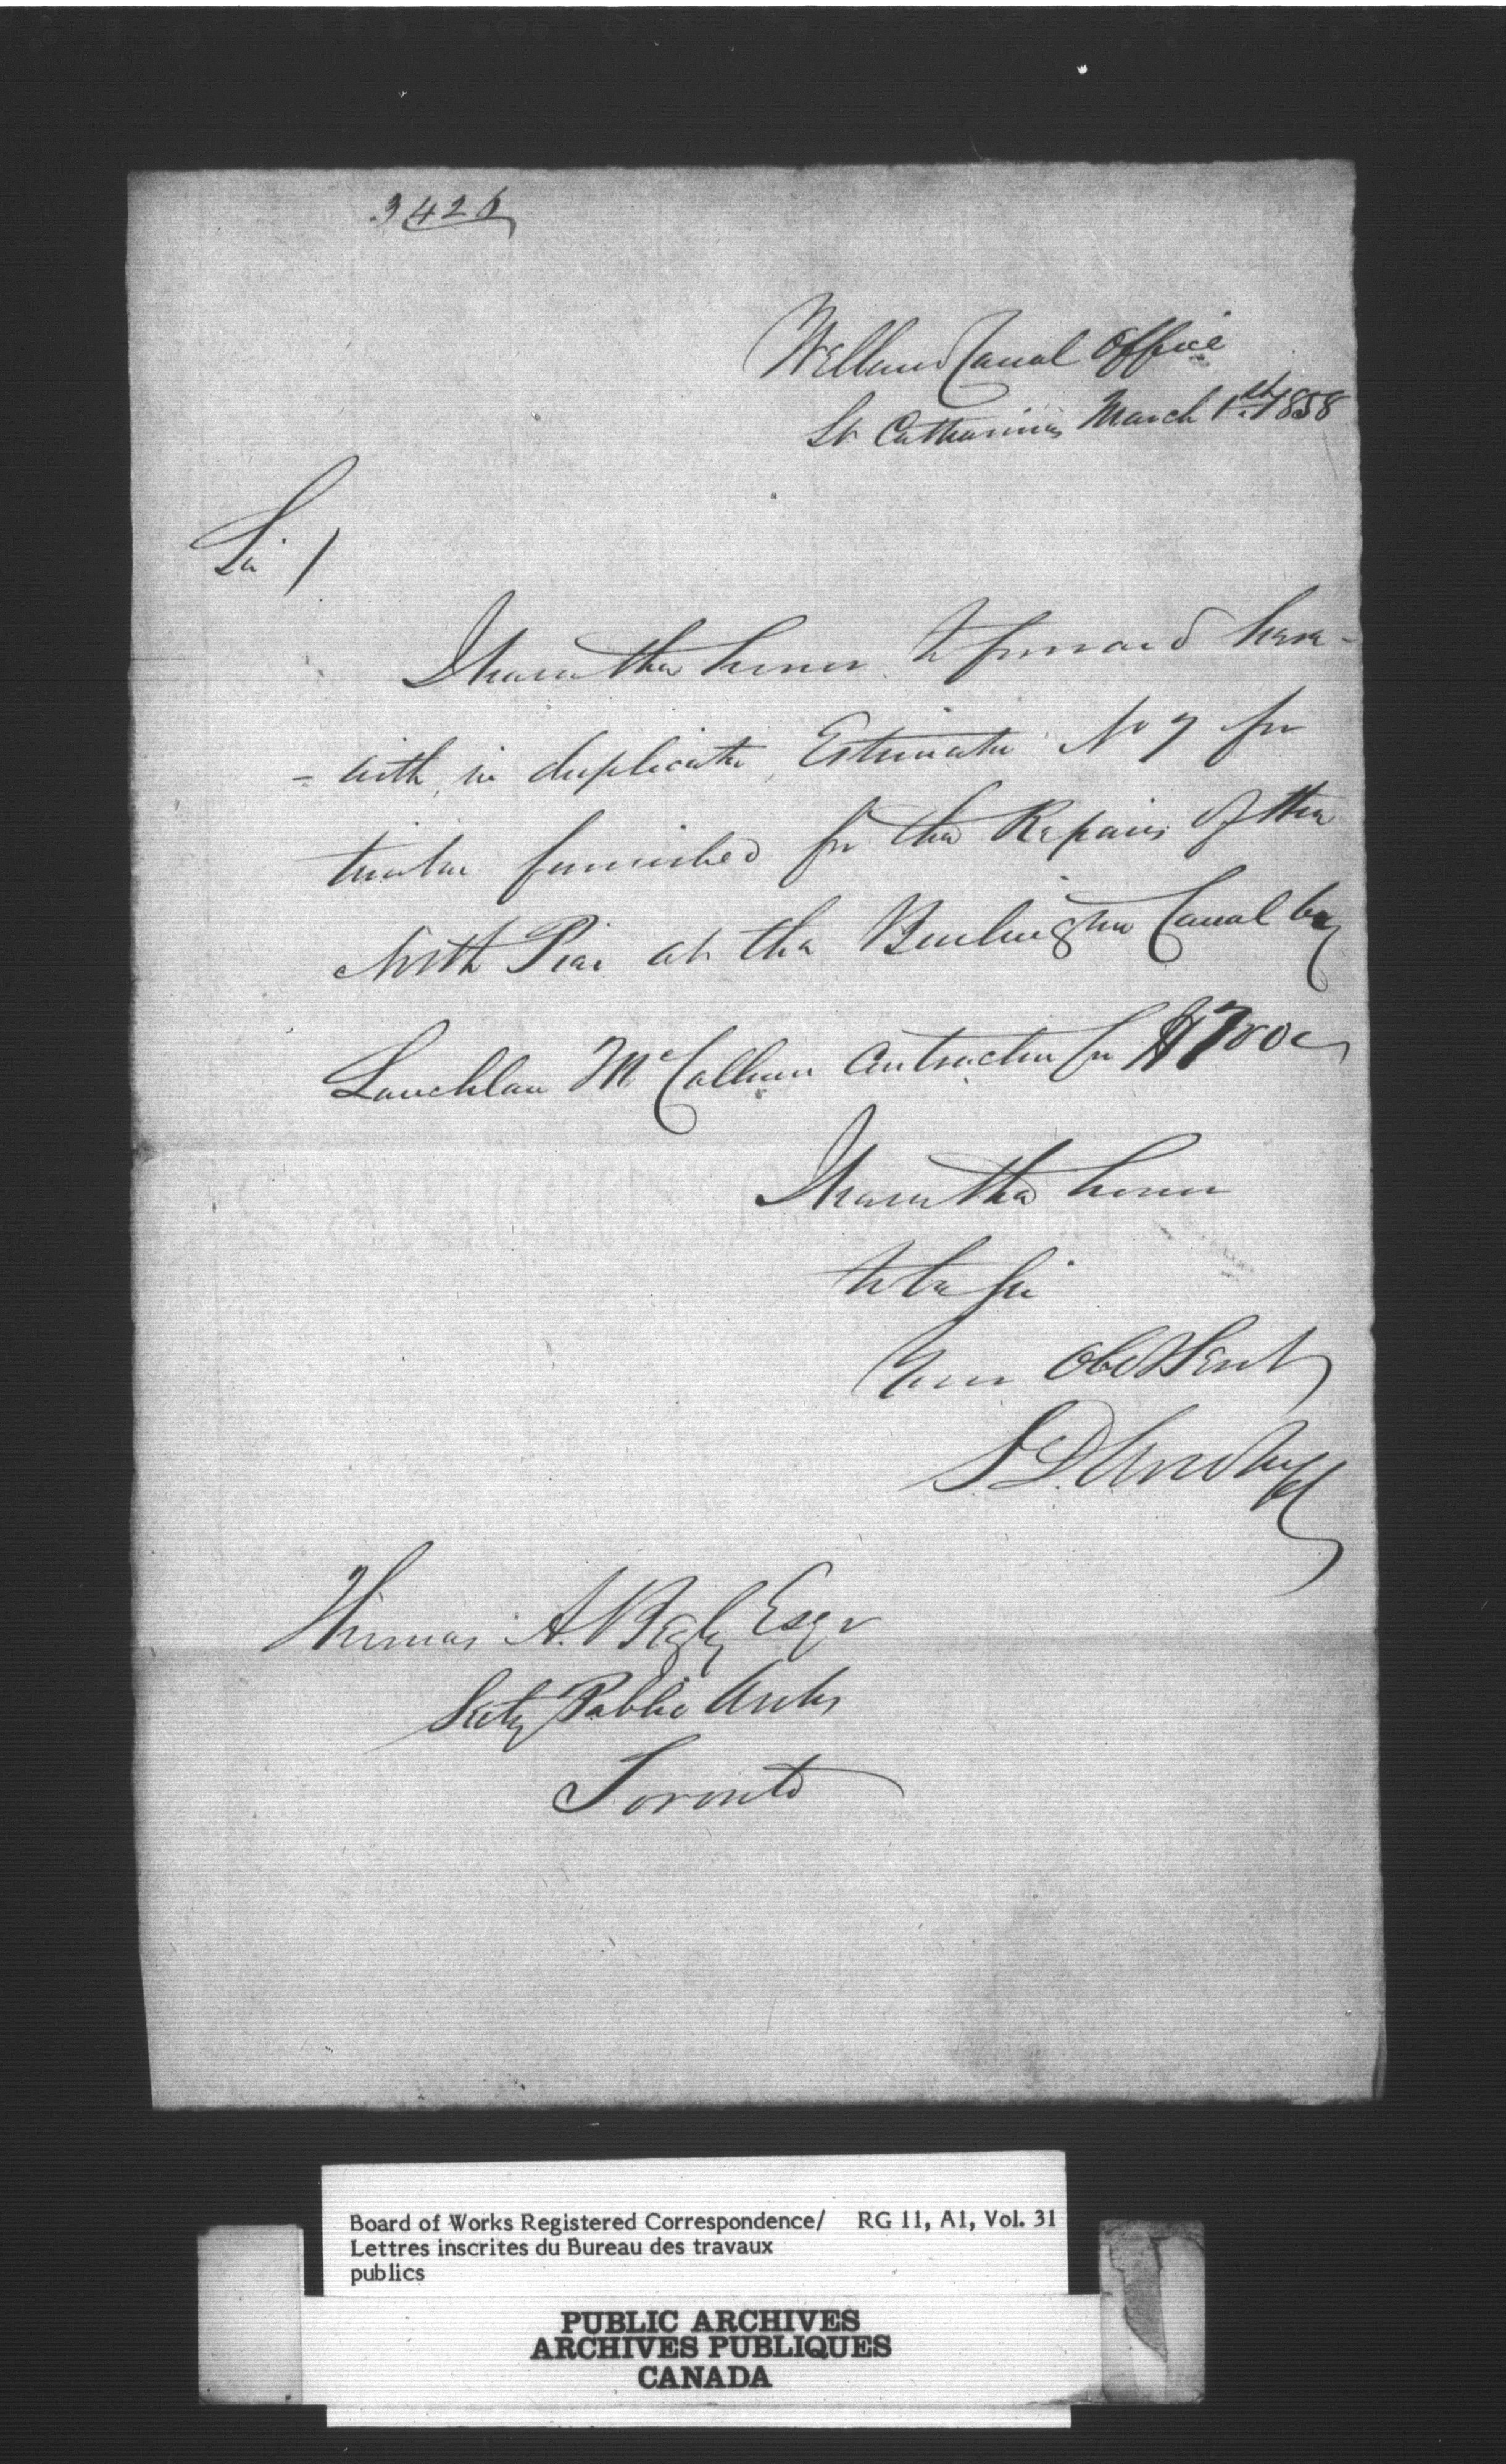 3426
Welland Canal Office
St Catharines March 1st 1858
Sir /
I have the honor to forward here-
= with, in duplicate, Estimate No 7 for
timber furnished for the Repairs of the
North Pier at the Burlington Canal by
Lauchlan McCallum Contractor for
I have the honor
to be Sir
Your Obdt Servt
S. D. Woodruff
Thomas A. Begly Esqr
Secty Public Works
Toronto
Board of Works Registered Correspondence/ RG 11, A1, Vol. 31
Lettres inscrites du Bureau des travaux
publics
PUBLIC ARCHIVES
ARCHIVES PUBLIQUES
CANADA